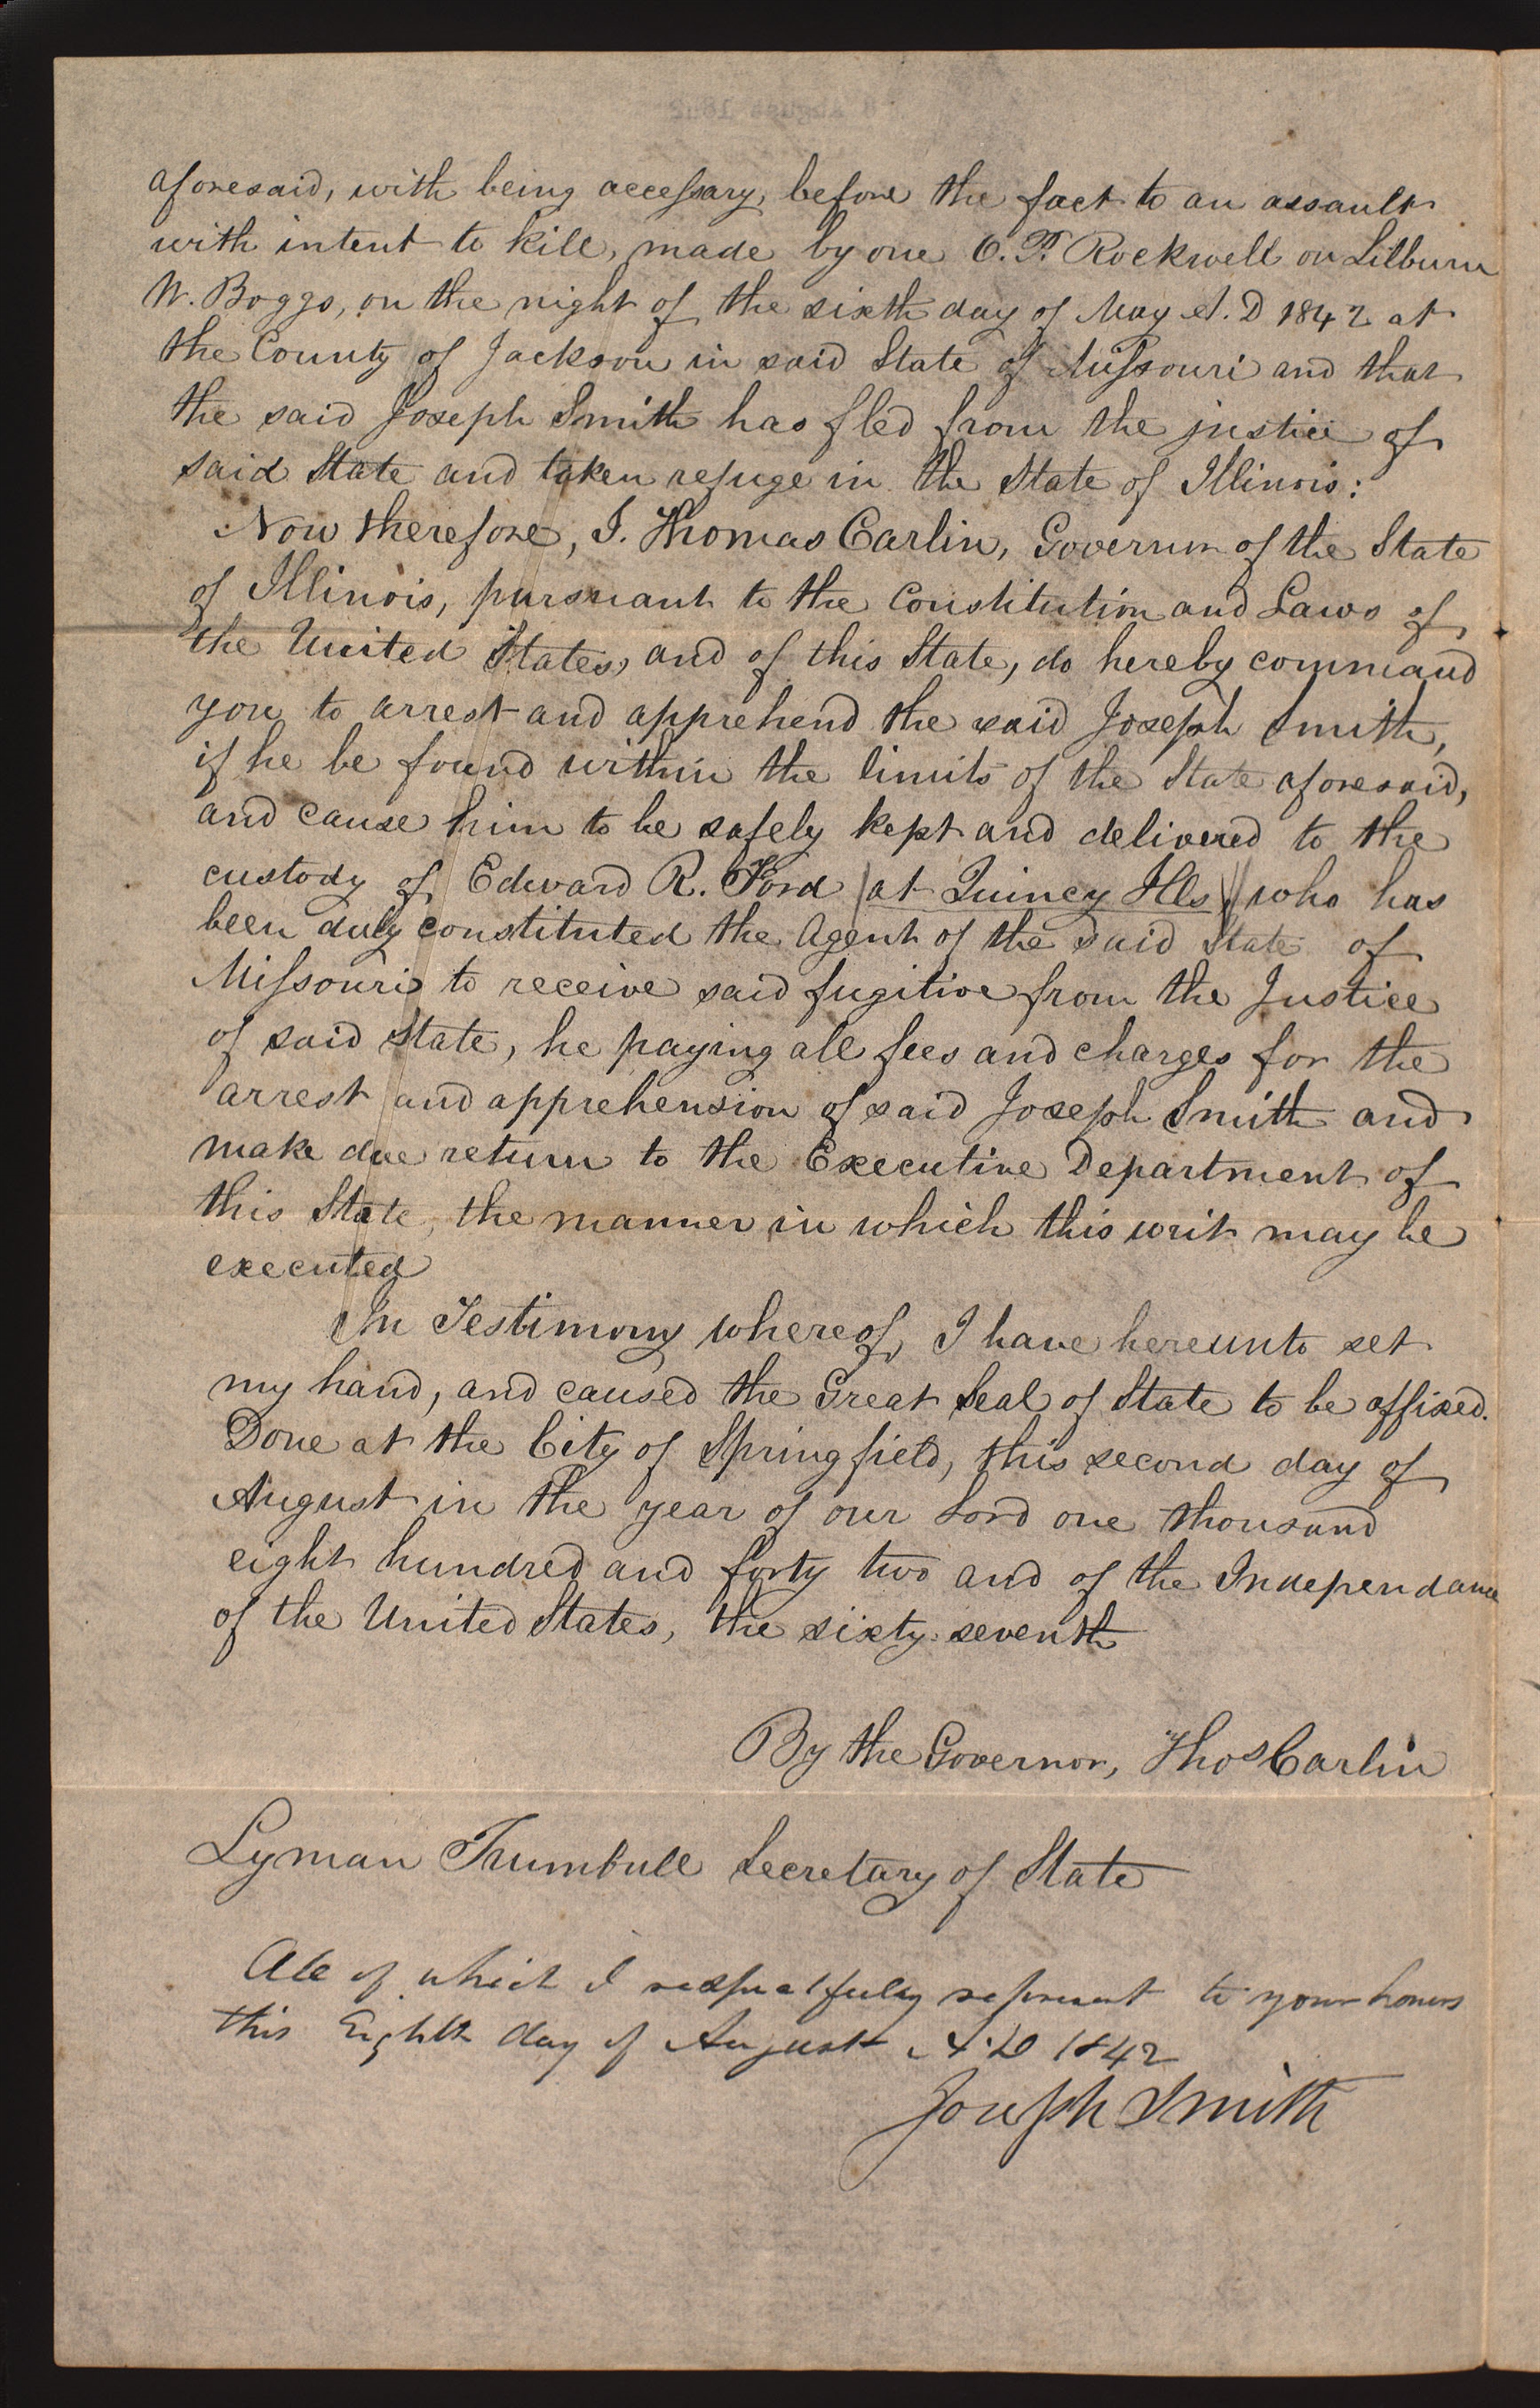 8 August 1842
aforesaid, with being accessary, before the fact to an assault
with intent to kill, made by one O. P. Rockwell on Lilburn
W. Boggs, on the night of the sixth day of May A. D 1842 at
the County of Jackson in said State of Missouri and that
the said Joseph Smith has fled from the justice of
said State and taken refuge in the State of Illinois:
Now therefore, I. Thomas Carlin, Governor of the State
of Illinois, pursuant to the Constitution and Laws of
the United States, and of this State, do hereby command
you to arrest and apprehend the said Joseph Smith,
if he be found within the limits of the State aforesaid,
and cause him to be safely kept and delivered to the
custody of Edward R. Ford (at Quincy Ills) who has
been duly constituted the Agent of the said State of
Missouri to receive said fugitive from the Justice
of said State, he paying all fees and charges for the
arrest and apprehension of said Joseph Smith and
make due return to the Executive Department of
this State, the manner in which this writ may be
executed
In Testimony whereof, I have hereunto set
my hand, and caused the Great Seal of State to be affixed.
Done at the City of Springfield, this second day of
August in the year of our Lord one thousand
eight hundred and forty two and of the Independance
of the United States, the sixty seventh
By the Governor, Thos Carlin
Lyman Trumbull Secretary of State
All of which I respectfully represent to your honors
this Eighth day of August A. D 1842
Joseph Smith